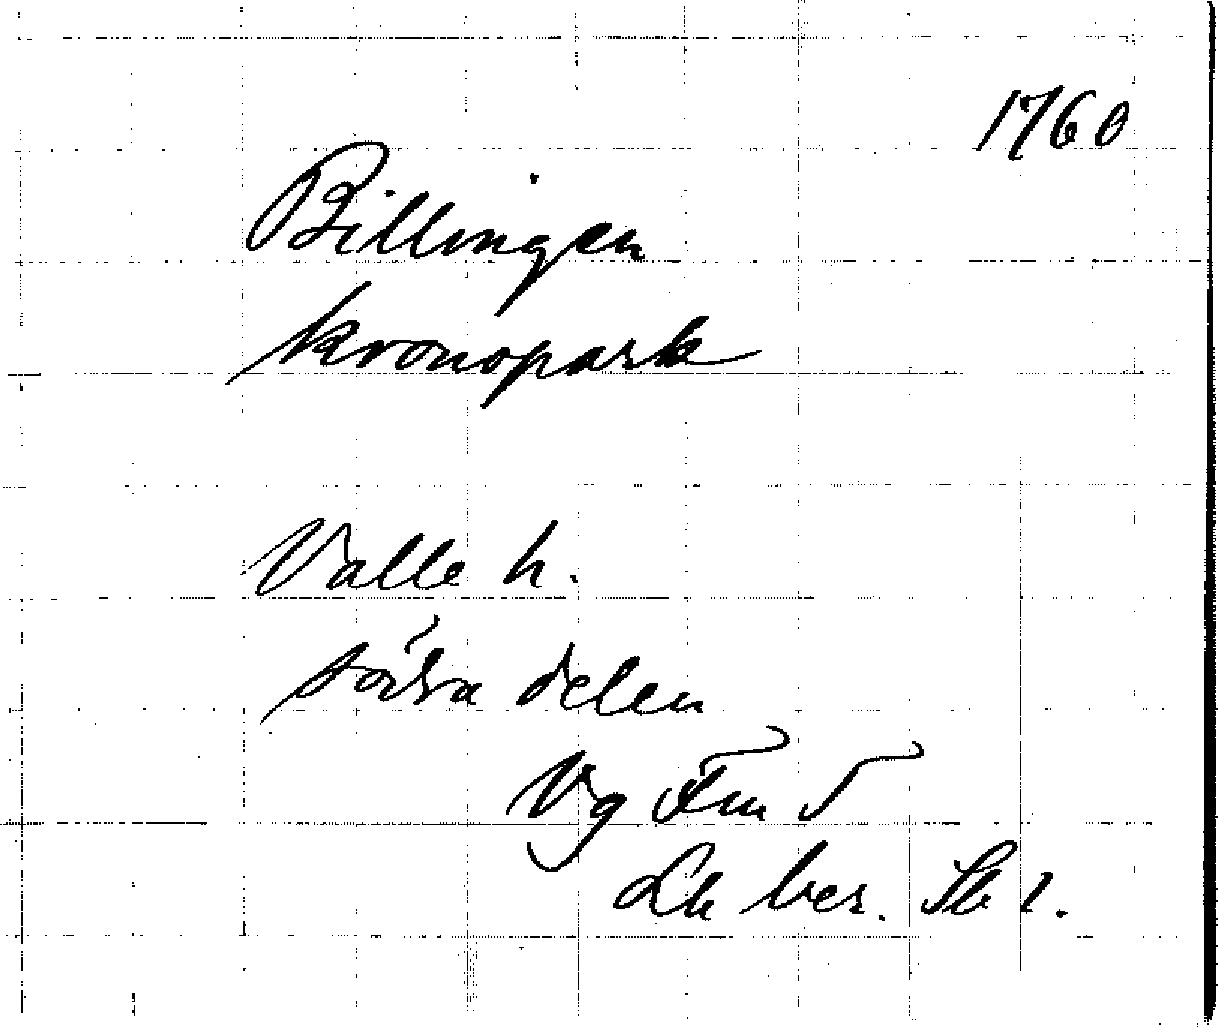 1760
Billingen
kronopark
Valle h.
södra delen
Vg Fm 5
Lk ber. Sk 1.